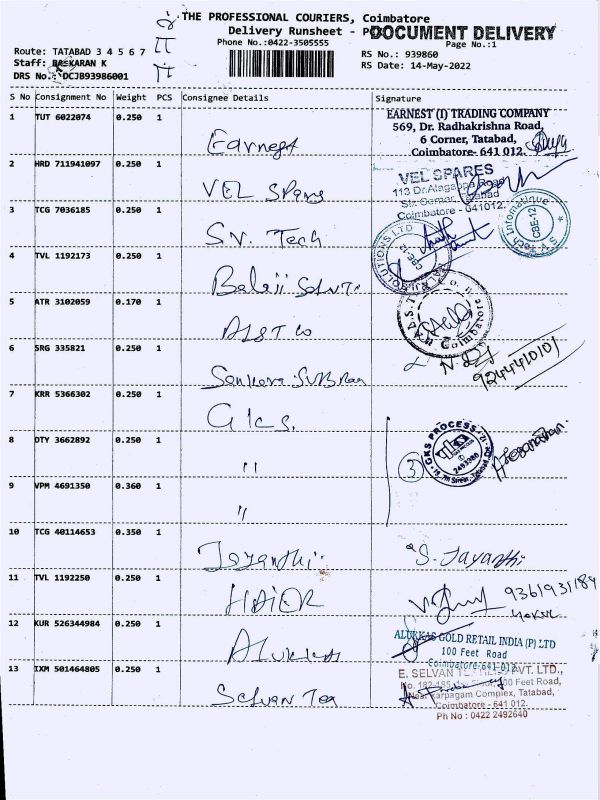 THE PROFESSIONAL COURIERS, Coimbatore
Delivery Runsheet - P
DOCUMENT DELIVERY
Phone No.:0422-3505555
Page No.:1
Route: TATABAD 3 4 5 6 7
RS No.: 939860
Staff: BASKARAN K
RS Date: 14-May-2022
DRS No.: DCJB93986001
S No Consignment No Weight PCS Consignee Details Signature
1 TUT 6022074 0.250 1
Earnest
EARNEST (I) TRADING COMPANY
569, Dr. Radhakrishna Road,
6 Corner, Tatabad,
Coimbatore- 641 012.
2 HRD 711941097 0.250 1
VEL Spares
VEL SPARES
113 Dr.Alagappa Road
Six Corner, Tatabad
Coimbatore - 641012.
3 TCG 7036185 0.250 1
S.V. Tech
S.V. Tech Infomatique
CBE-12
4 TVL 1192173 0.250 1
Balaji
SOLUTIONS LTD
CBE-12
5 ATR 3102059 0.170 1
Coimbatore
6 SRG 335821 0.250 1
9244410101
7 KRR 5366302 0.250 1
GKS.
8 DTY 3662892 0.250 1
"
3
GKS PROCESS
2493380
9 VPM 4691350 0.360 1
"
10 TCG 40114653 0.350 1
Jayanthi
S. Jayanthi
11 TVL 1192250 0.250 1
HAIER
9361931184
12 KUR 526344984 0.250 1
Alukkas
ALUKKAS GOLD RETAIL INDIA (P) LTD
100 Feet Road
Coimbatore-641-012.
13 IXM 501464805 0.250 1
Selvan Tex
E. SELVAN TEXTILES PVT. LTD.,
100 Feet Road,
Near Karpagam Complex, Tatabad,
Coimbatore - 641 012.
Ph No : 0422 2492640